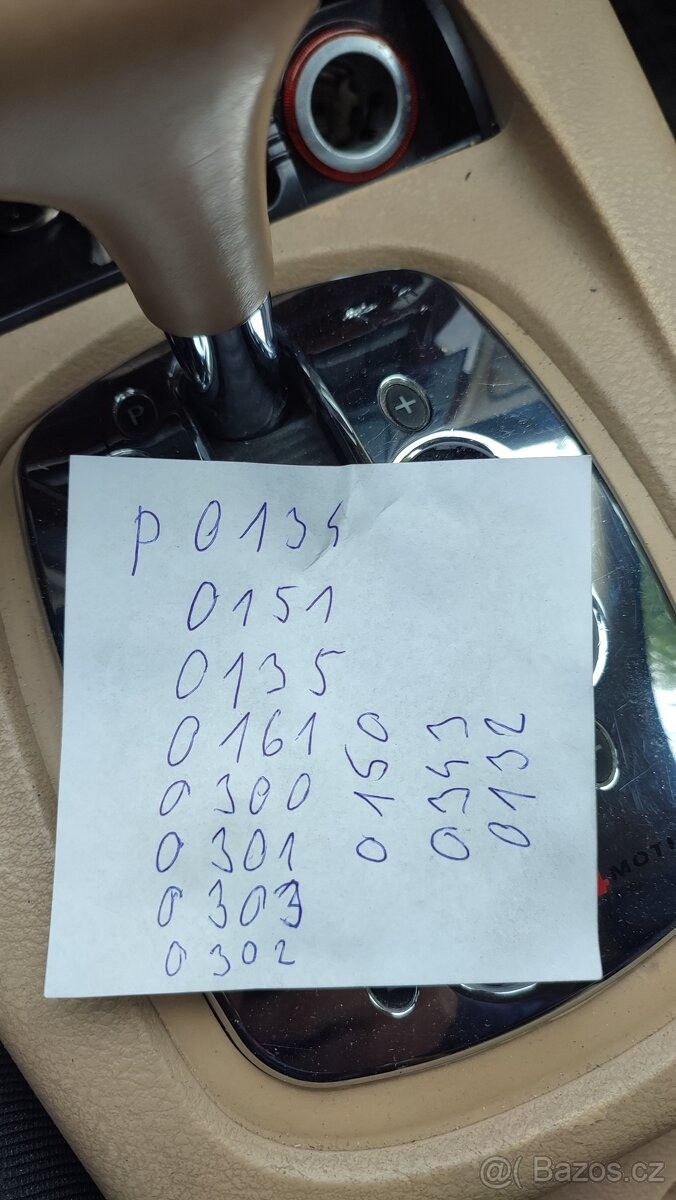 P
+
P 0134
0151
0135
0161
0300
0301
0303
0302
0150
0343
0132
4MOTI
@( Bazos.cz